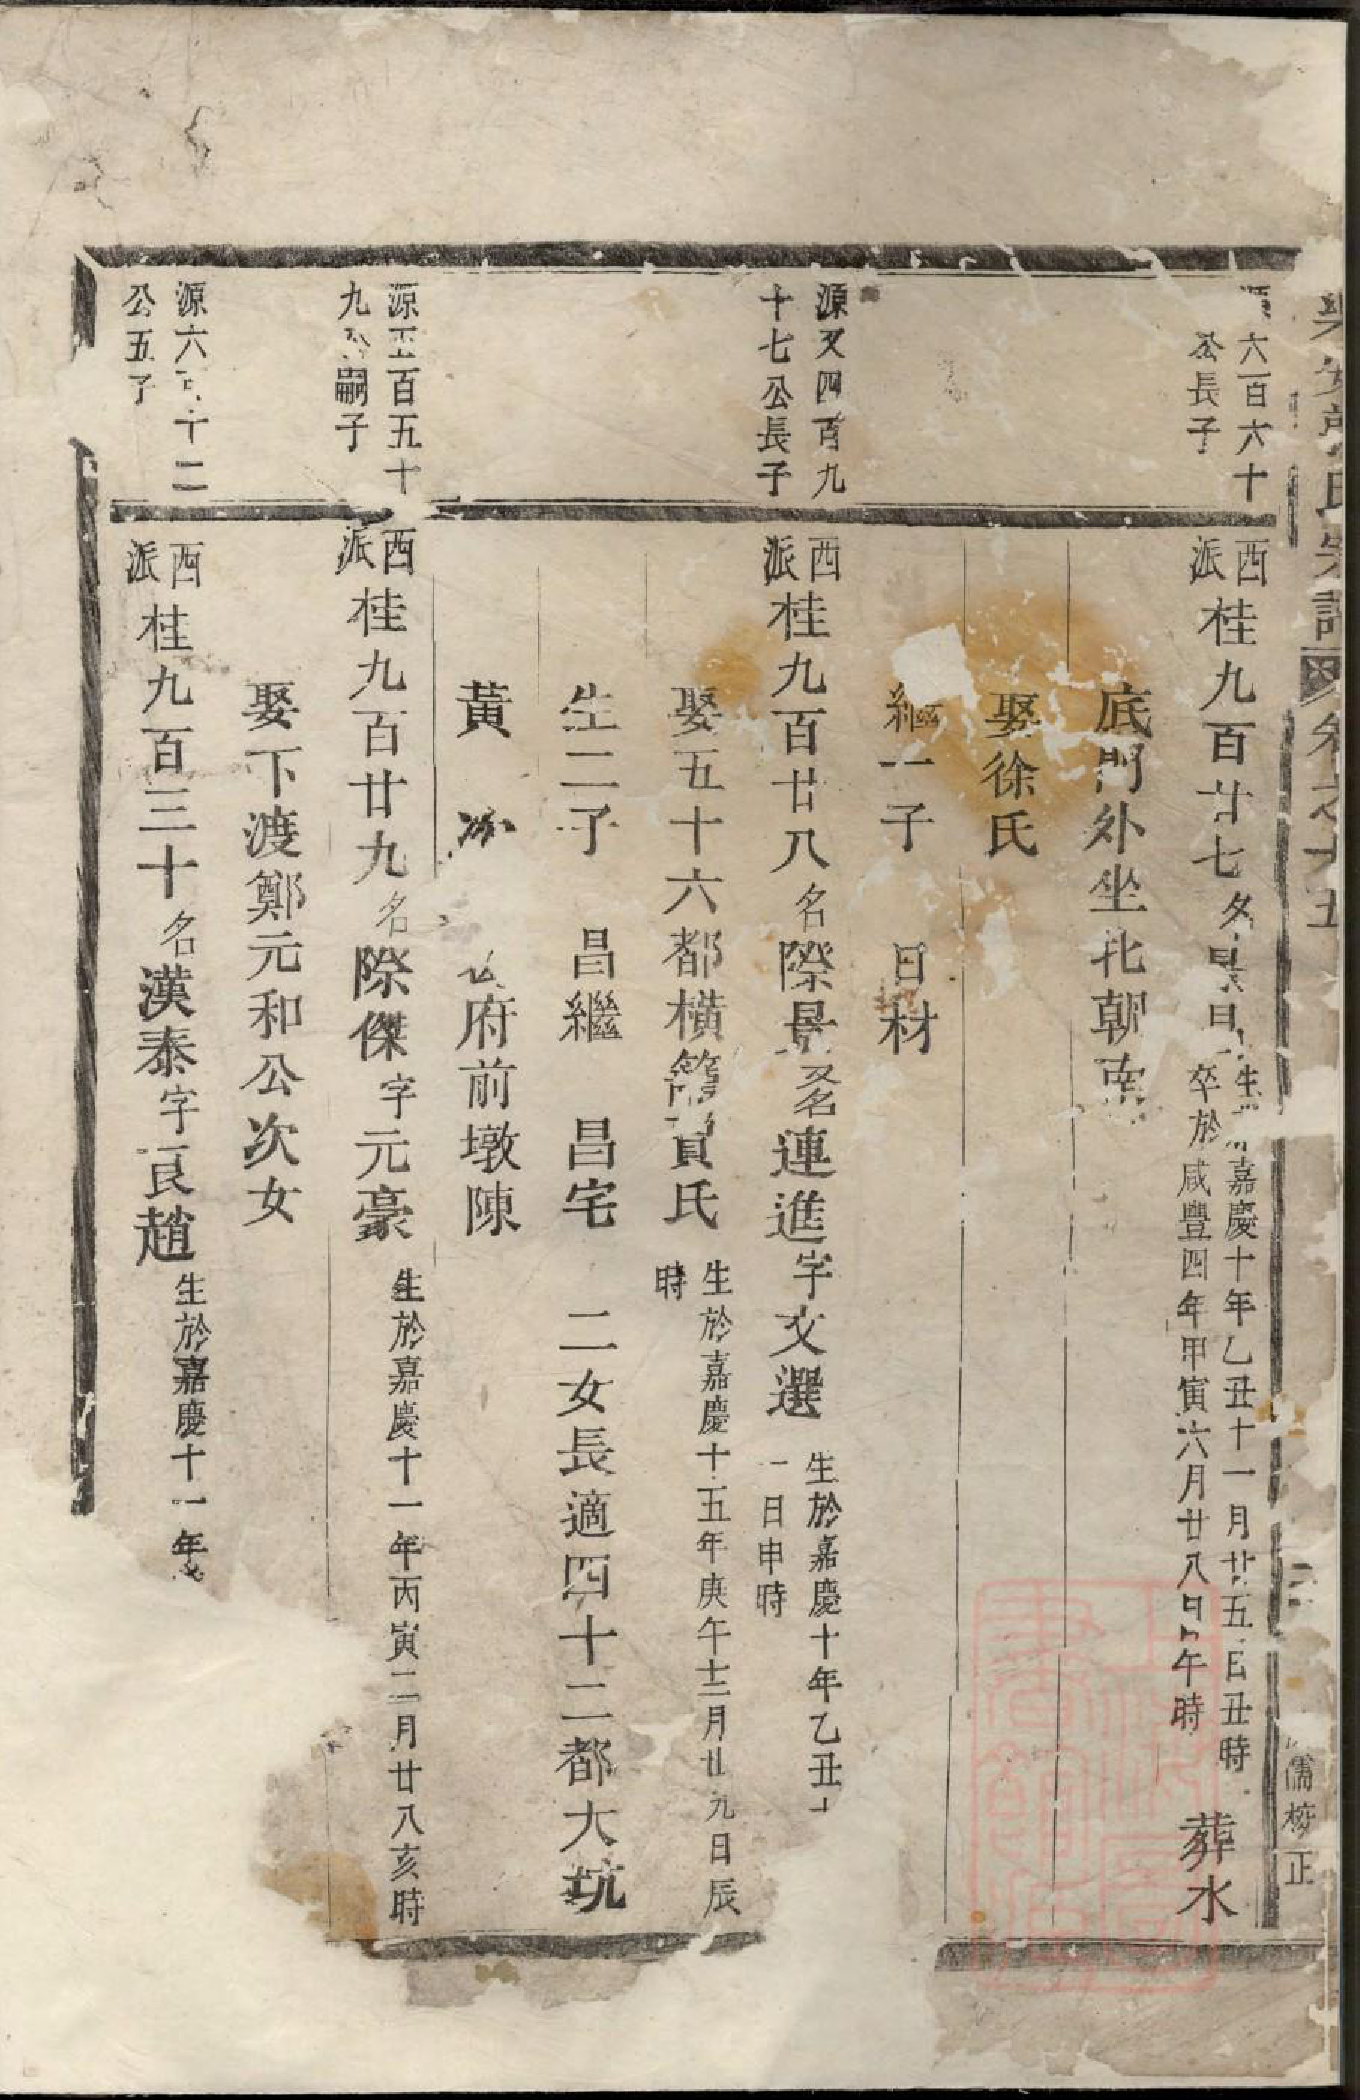 氏宗譜 卷之六五
儒校正
六百六十
公長子
西派桂九百廿七名
生 嘉慶十年乙丑十一月廿五日丑時
卒於咸豐四年甲寅六月廿八日午時
葬水
底門外坐北朝南
娶徐氏
繼一子 日材
源又四百九
十七公長子
西派桂九百廿八名際景又名連進字文選
生於嘉慶十年乙丑十
一日申時
娶五十六都橫 賁氏
生於嘉慶十五年庚午十二月廿九日辰
時
生二子 昌繼 昌宅 二女長適四十二都大坑
黃 府前墩陳
源五百五十
九公嗣子
西派桂九百廿九名際傑字元豪
生於嘉慶十一年丙寅二月廿八亥時
娶下渡鄭元和公次女
源六百十二
公五子
西派桂九百三十名漢泰字良趙
生於嘉慶十一年